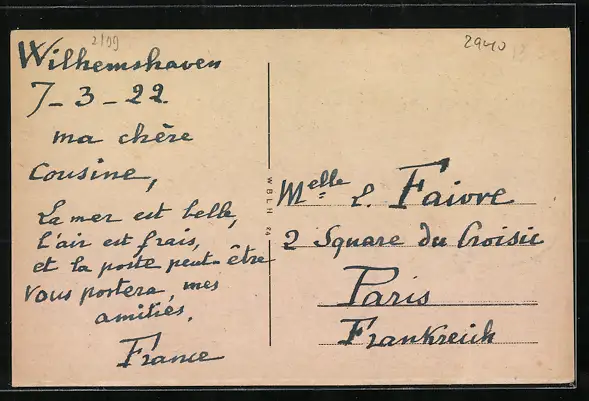 2109
2940
13
Wilhemshaven
7-3-22.
ma chère
cousine,
La mer est belle,
l'air est frais,
et la poste peut-être
vous portera mes
amitiés.
France
W.B.L.H. 24
Melle L. Faivre
2 Square du Croisic
Paris
Frankreich